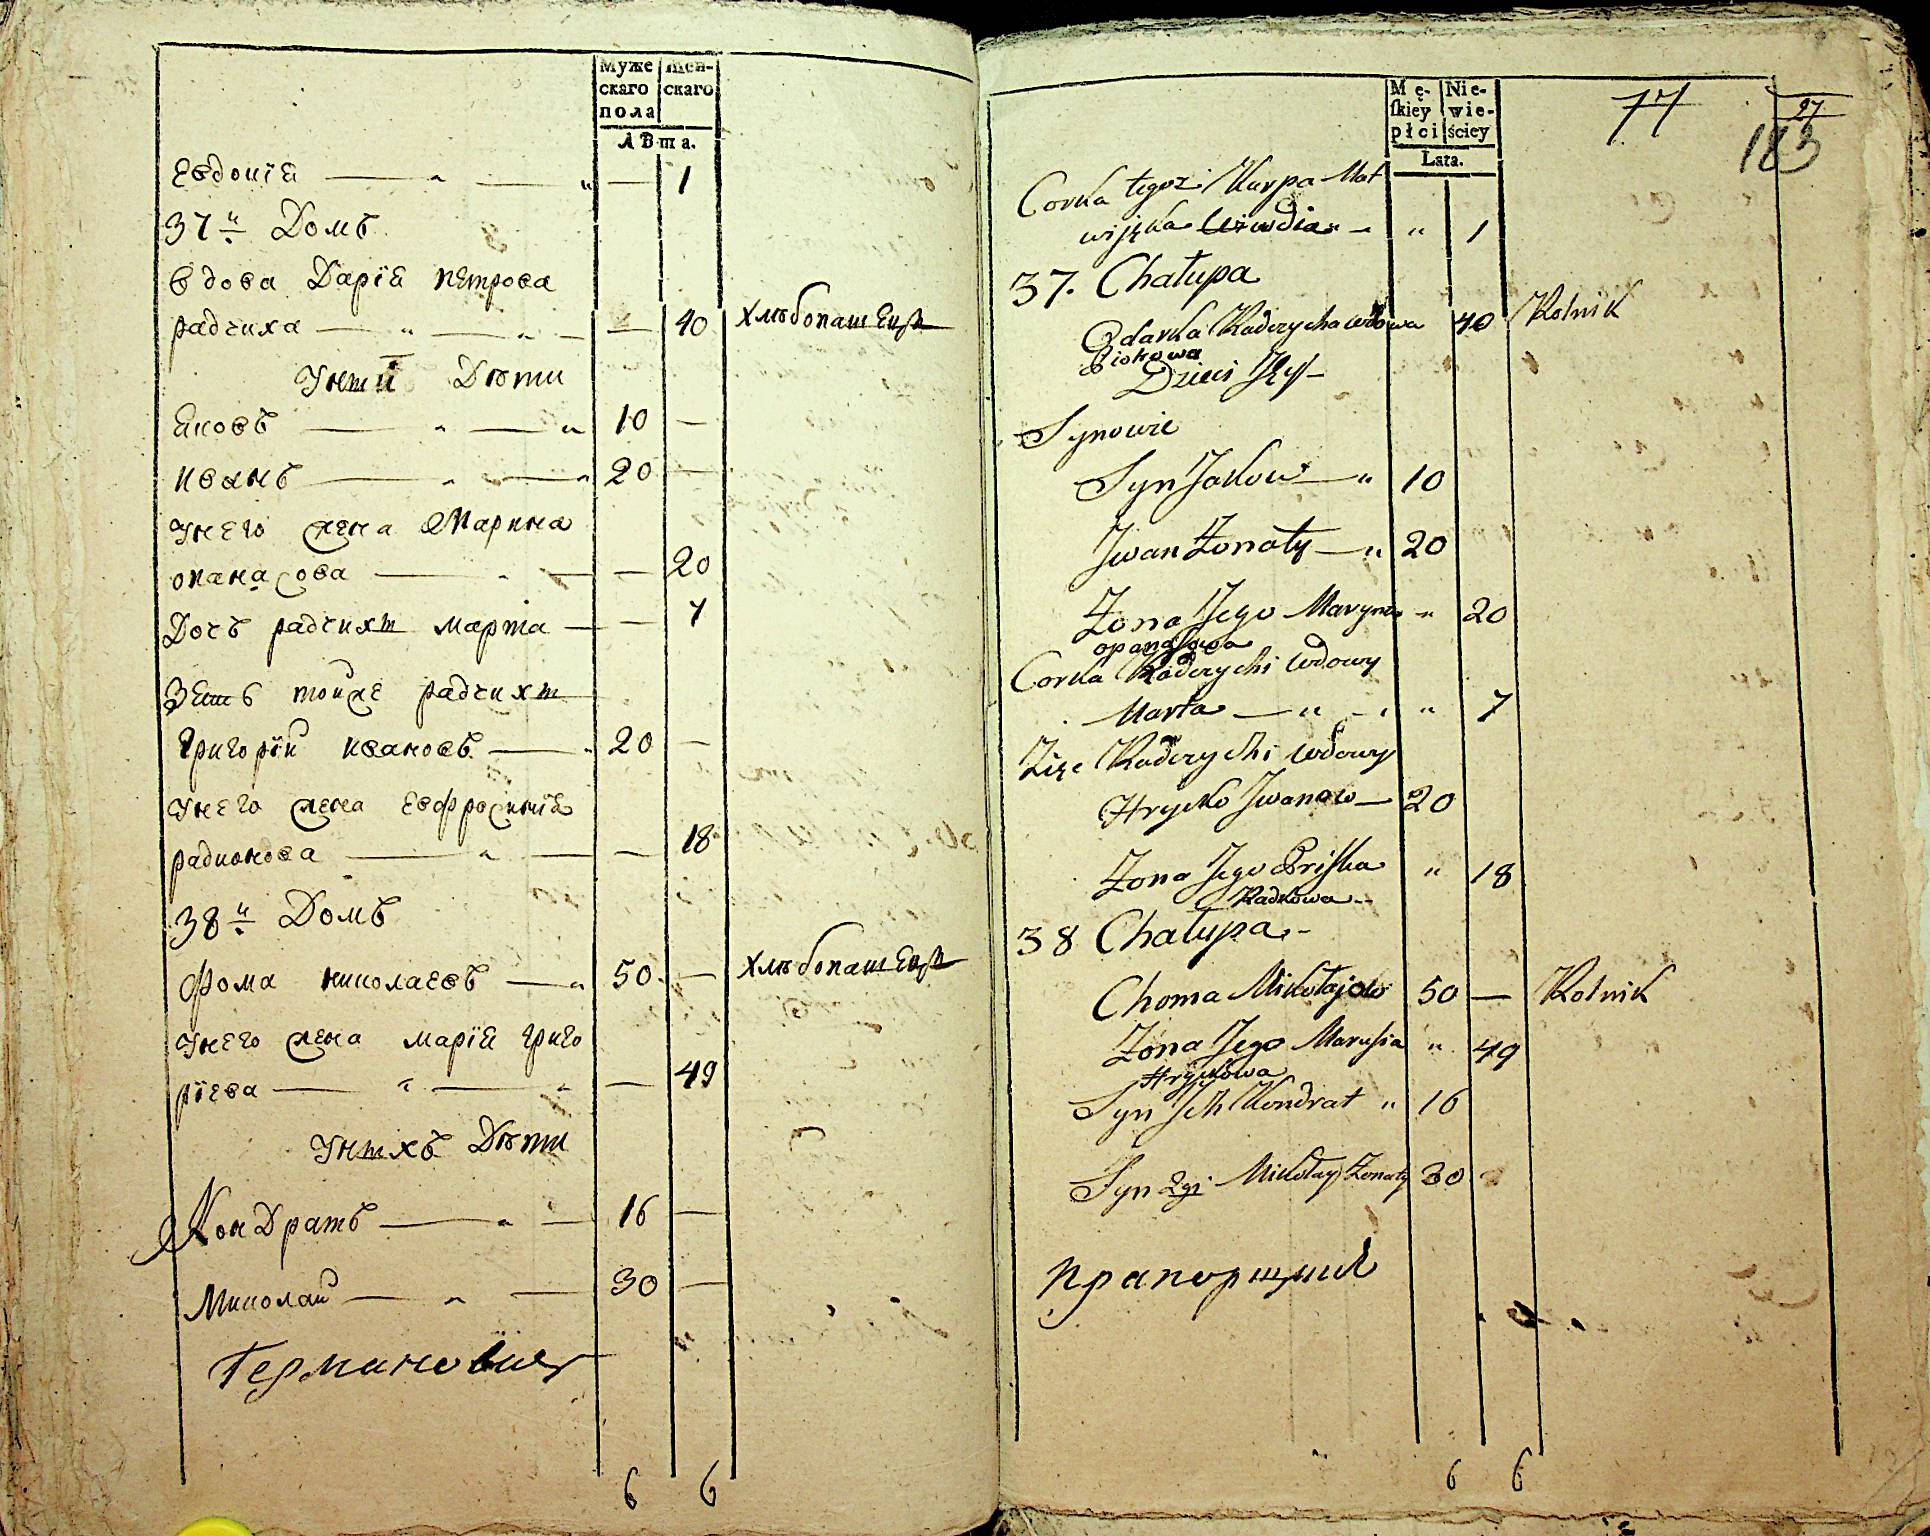 Муже Жен-
скаго скаго
пола
Лѣта.
Евдокія — „ — „ — 1
37й Домъ
вдова Дарія петрова
радчиха — „ — „ — — 40 хлѣбопашецъ
Унеи Дѣти
Яковъ — „ — „ 10 —
иванъ — „ — „ 20 —
Унего жена Марина
опанасова — „ — — 20
Дочъ радчихи марта — — 7
Зять тойже радчихи
Григорій ивановъ — „ 20 —
Унего жена евфросинія
радионова — „ — — 18
38й Домъ
Фома николаевъ — „ 50 — хлѣбопашецъ
Унего жена марія григо
ріева — „ — „ — 49
Унихъ Дѣти
Кондратъ — „ — 16 —
Миколай — „ — 30 —
Германовичъ
6 6
Mę- Nie-
skiey wie-
płci ściey
Lata.
77
97
183
Corka tegoż Karpa Mat
wijęka Ewdia „ — „ 1
37. Chałupa
Odarka Radczycha wdowa 40 Rolnik
Piotrowa
Dzieci Jey —
Synowie
Syn Jakow — „ 10
Jwan Żonaty — „ 20
Żona Jego Maryna „ 20
opanasowa
Corka Radczychi wdowy
Marta — „ — „ „ 7
Zięc Radczychi wdowy
Hrycko Jwanow — 20
Żona Jego Priska „ 18
Radkowa —
38 Chałupa —
Choma Mikołajow 50 — Rolnik
Żona Jego Marusia „ 49
Hryckowa
Syn Jch Kondrat „ 16
Syn 2gi Mikołay Żonaty 30 „
прапорщикъ
6 6